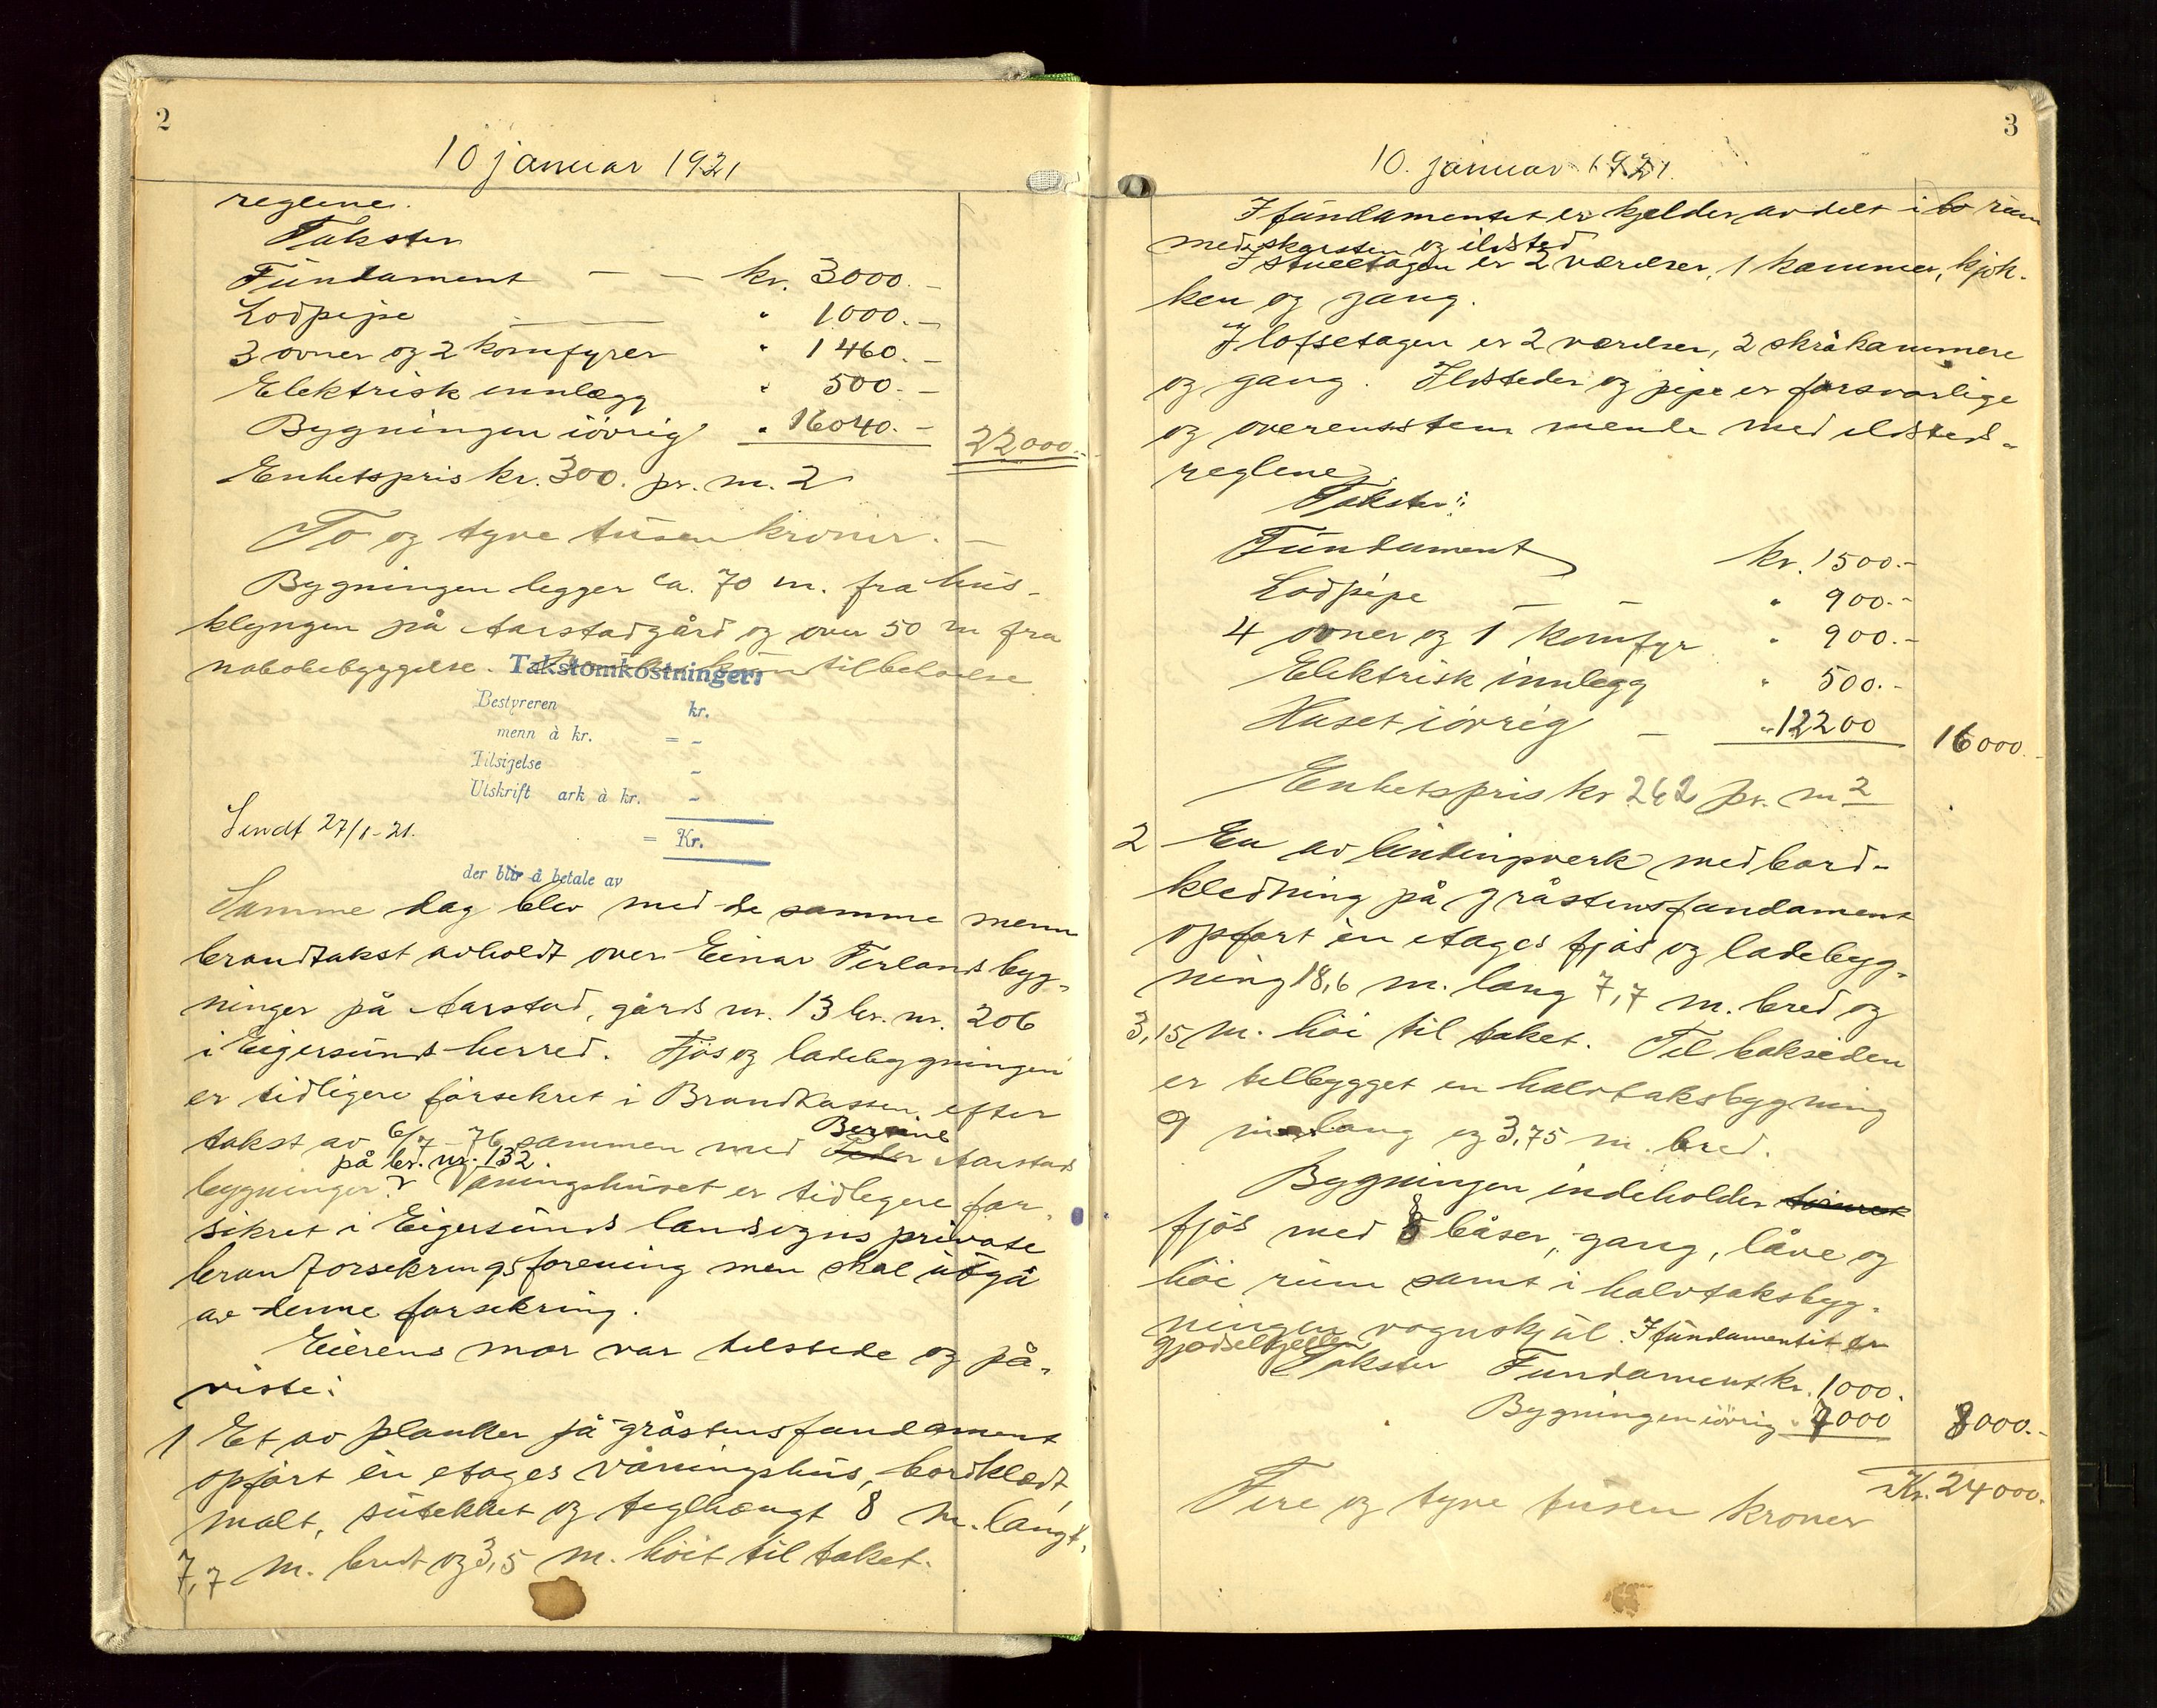 2
10 januar 1921
reglene.
Takster
Fundament — — kr. 3000.–
Lodpipe — — " 1000.–
3 ovner og 2 komfyrer " 1460.–
Elektrisk innlegg " 500.–
Bygningen iøvrig " 16040.– 22000.–
Enhetspris kr. 300. pr. m. 2
To og tyve tusen kroner.–
Bygningen legger ca. 70 m. fra hus-
klyngen på Aarstadgård og over 50 m fra
nabobebyggelse. tilbehørelse
Takstomkostninger:
Bestyreren kr.
menn à kr. = –
Tilsigelse –
Utskrift ark à kr. –
Sendt 27/1-21. = Kr.
der blir å betale av
Samme dag blev med de samme menn
brandtakst avholdt over Einar Ferlands byg-
ninger på Aarstad, gårds nr. 13 br. nr. 206
i Eigersunds herred. Fjøs og ladebygningen
er tidligere forsekret i Brandkassen efter
takst av 6/7-76 sammen med Berine Aarstads
på br. nr. 132.
bygninger. Våningshuset er tidligere for-
sikret i Eigersunds landsogns private
brandforsekringsforening men skal utgå
av denne forsekring.
Eierens mor var tilstede og på-
viste:
1 Et av planker på gråstensfundament
opført én etages våningshus, bordklædt,
malt, sutekket og teglhængt 8 m. langt,
7,7 m. bredt og 3,5 m. höit til taket.
3
10. januar 1921.
I fundamentet er kjelder avdelt i to rum
med skorsten og ildsted
I stueetagen er 2 værelser, 1 kammer, kjøk-
ken og gang.
I loftsetagen er 2 værelser, 2 skråkammere
og gang. Ildsteder og pipe er forsvarlige
og overensstemmende med ildsteds-
reglene.
Takster:
Fundament kr. 1500.–
Lodpipe — — " 900.–
4 ovner og 1 komfyr " 900.–
Elektrisk innlegg " 500.–
Huset iövrig — " 12200 16000.–
Enhetspris kr 262 pr. m 2
2 En av bindingverk med bord-
kledning på gråstensfundament
opført én etages fjøs og ladebyg-
ning 18,6 m. lang 7,7 m. bred og
3,15 m. höi til taket. Til baksiden
er tilbygget en halvtaksbygning
9 m lang og 3,75 m. bred.
Bygningen indeholder
fjøs med 8 båser, gang, låve og
höi rum samt i halvtaksbyg-
ningen vognskjul. I fundamentet er
gjødselkjeller
Takster Fundament kr. 1000.
Bygningen iövrig " 7000 8000.–
Kr. 24000.
Fire og tyve tusen kroner